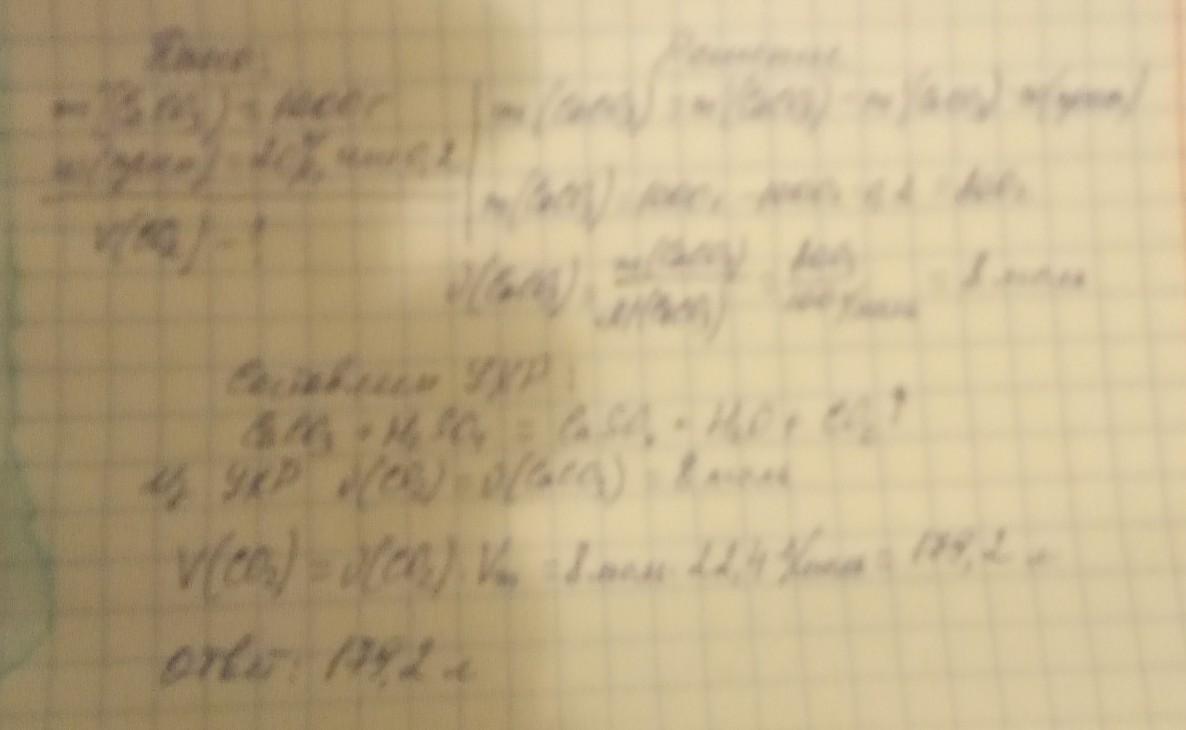 Дано:
m(CaCO₃) = 1000 г
w(прим) = 20%, или 0,2
V(CO₂) - ?
Решение
m(CaCO₃) = m(CaCO₃) - m(CaCO₃) · w(прим)
m(CaCO₃) = 1000 г - 1000 г · 0,2 = 800 г
ν(CaCO₃) = m(CaCO₃) / M(CaCO₃) = 800 г / 100 г/моль = 8 моль
Составим УХР:
CaCO₃ + H₂SO₄ = CaSO₄ + H₂O + CO₂↑
Из УХР ν(CO₂) = ν(CaCO₃) = 8 моль
V(CO₂) = ν(CO₂) · Vₘ = 8 моль · 22,4 л/моль = 179,2 л
Ответ: 179,2 л